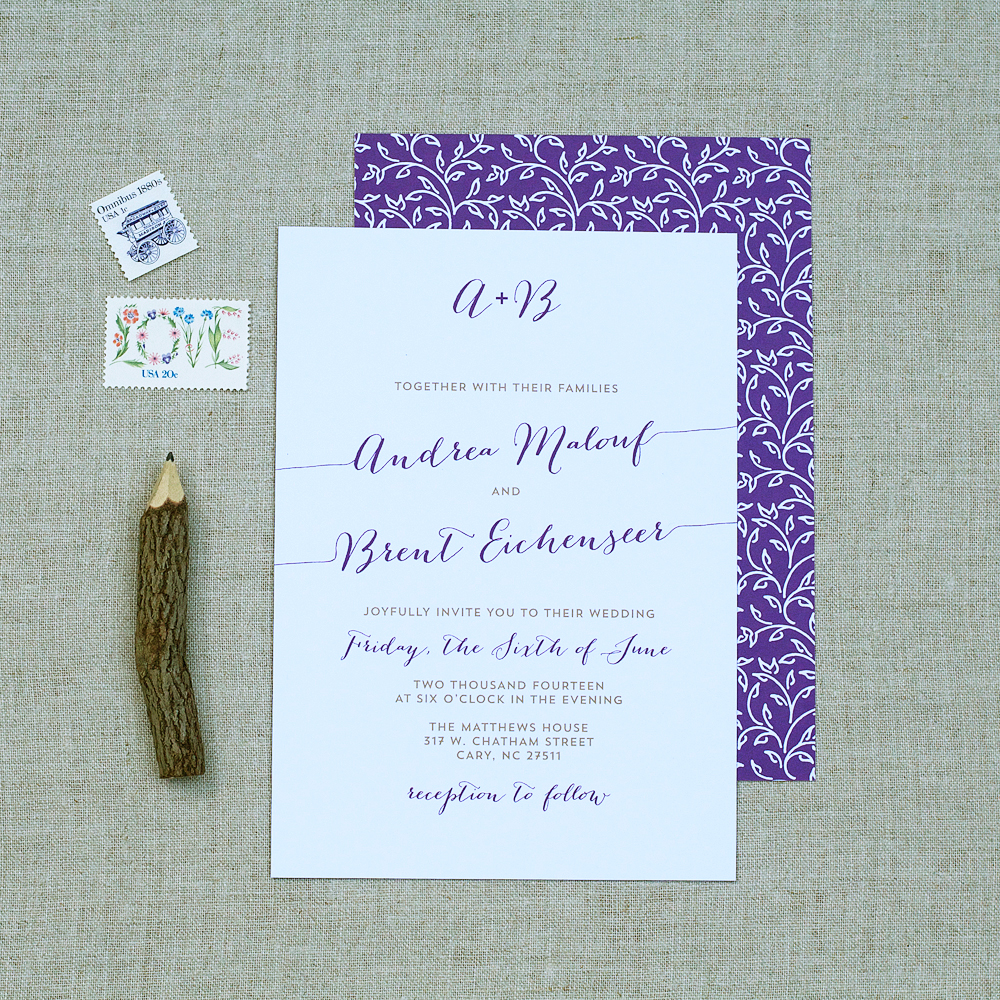 Omnibus 1880s
USA 1c
LOVE
USA 20c
A + B
TOGETHER WITH THEIR FAMILIES
Andrea Malouf
AND
Brent Eichenseer
JOYFULLY INVITE YOU TO THEIR WEDDING
Friday, the Sixth of June
TWO THOUSAND FOURTEEN
AT SIX O'CLOCK IN THE EVENING
THE MATTHEWS HOUSE
317 W. CHATHAM STREET
CARY, NC 27511
reception to follow